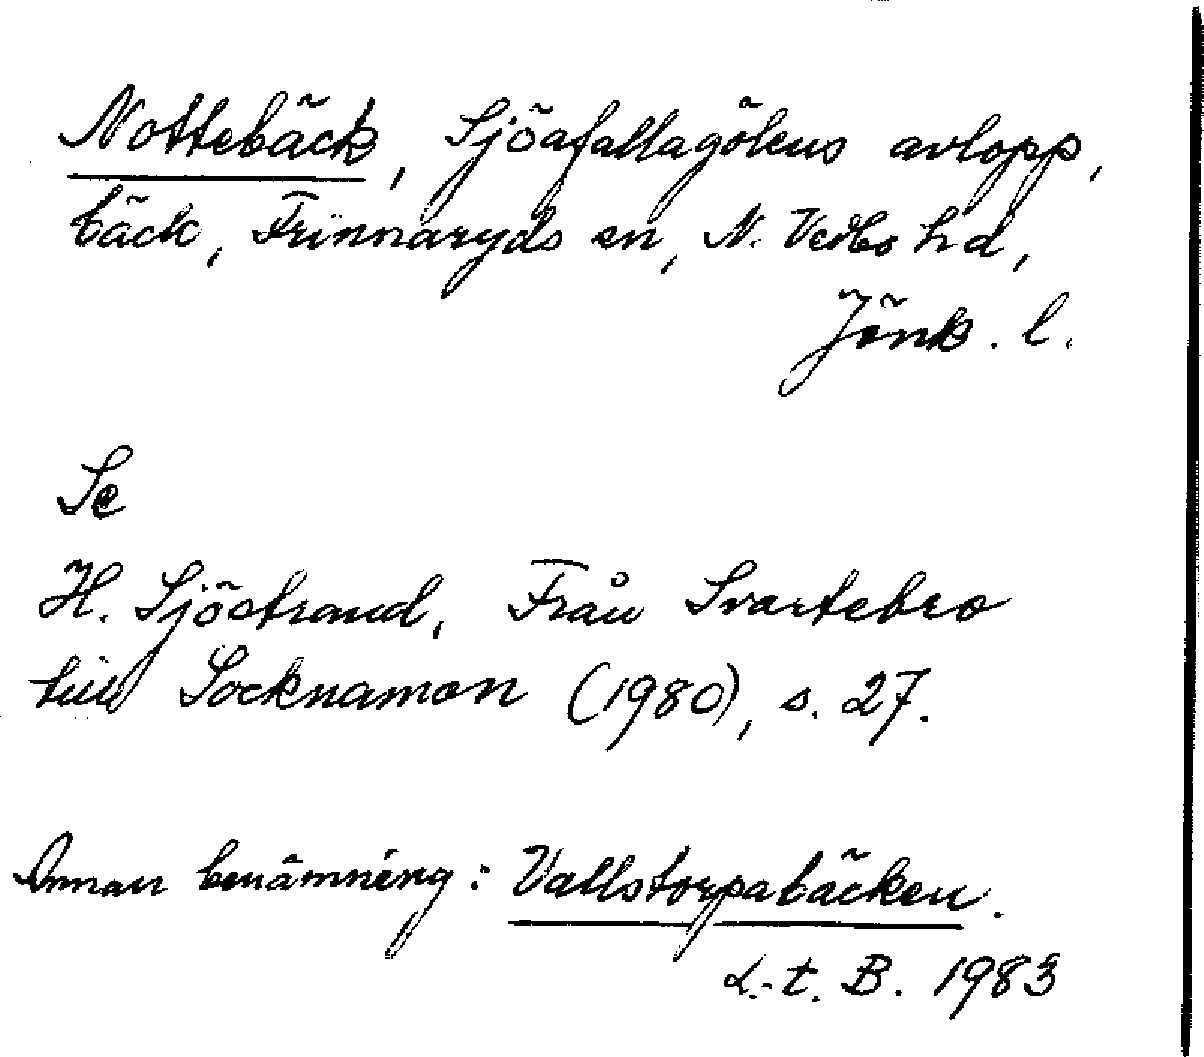 Nottebäck, Sjöafallagölens avlopp,
bäck, Frinnaryds sn, N. Vedbo hd,
Jönk. l.
Se
H. Sjöstrand, Från Svartebro
till Socknamon (1980), s. 27.
Annan benämning: Vallstorpabäcken.
L.-t. B. 1983